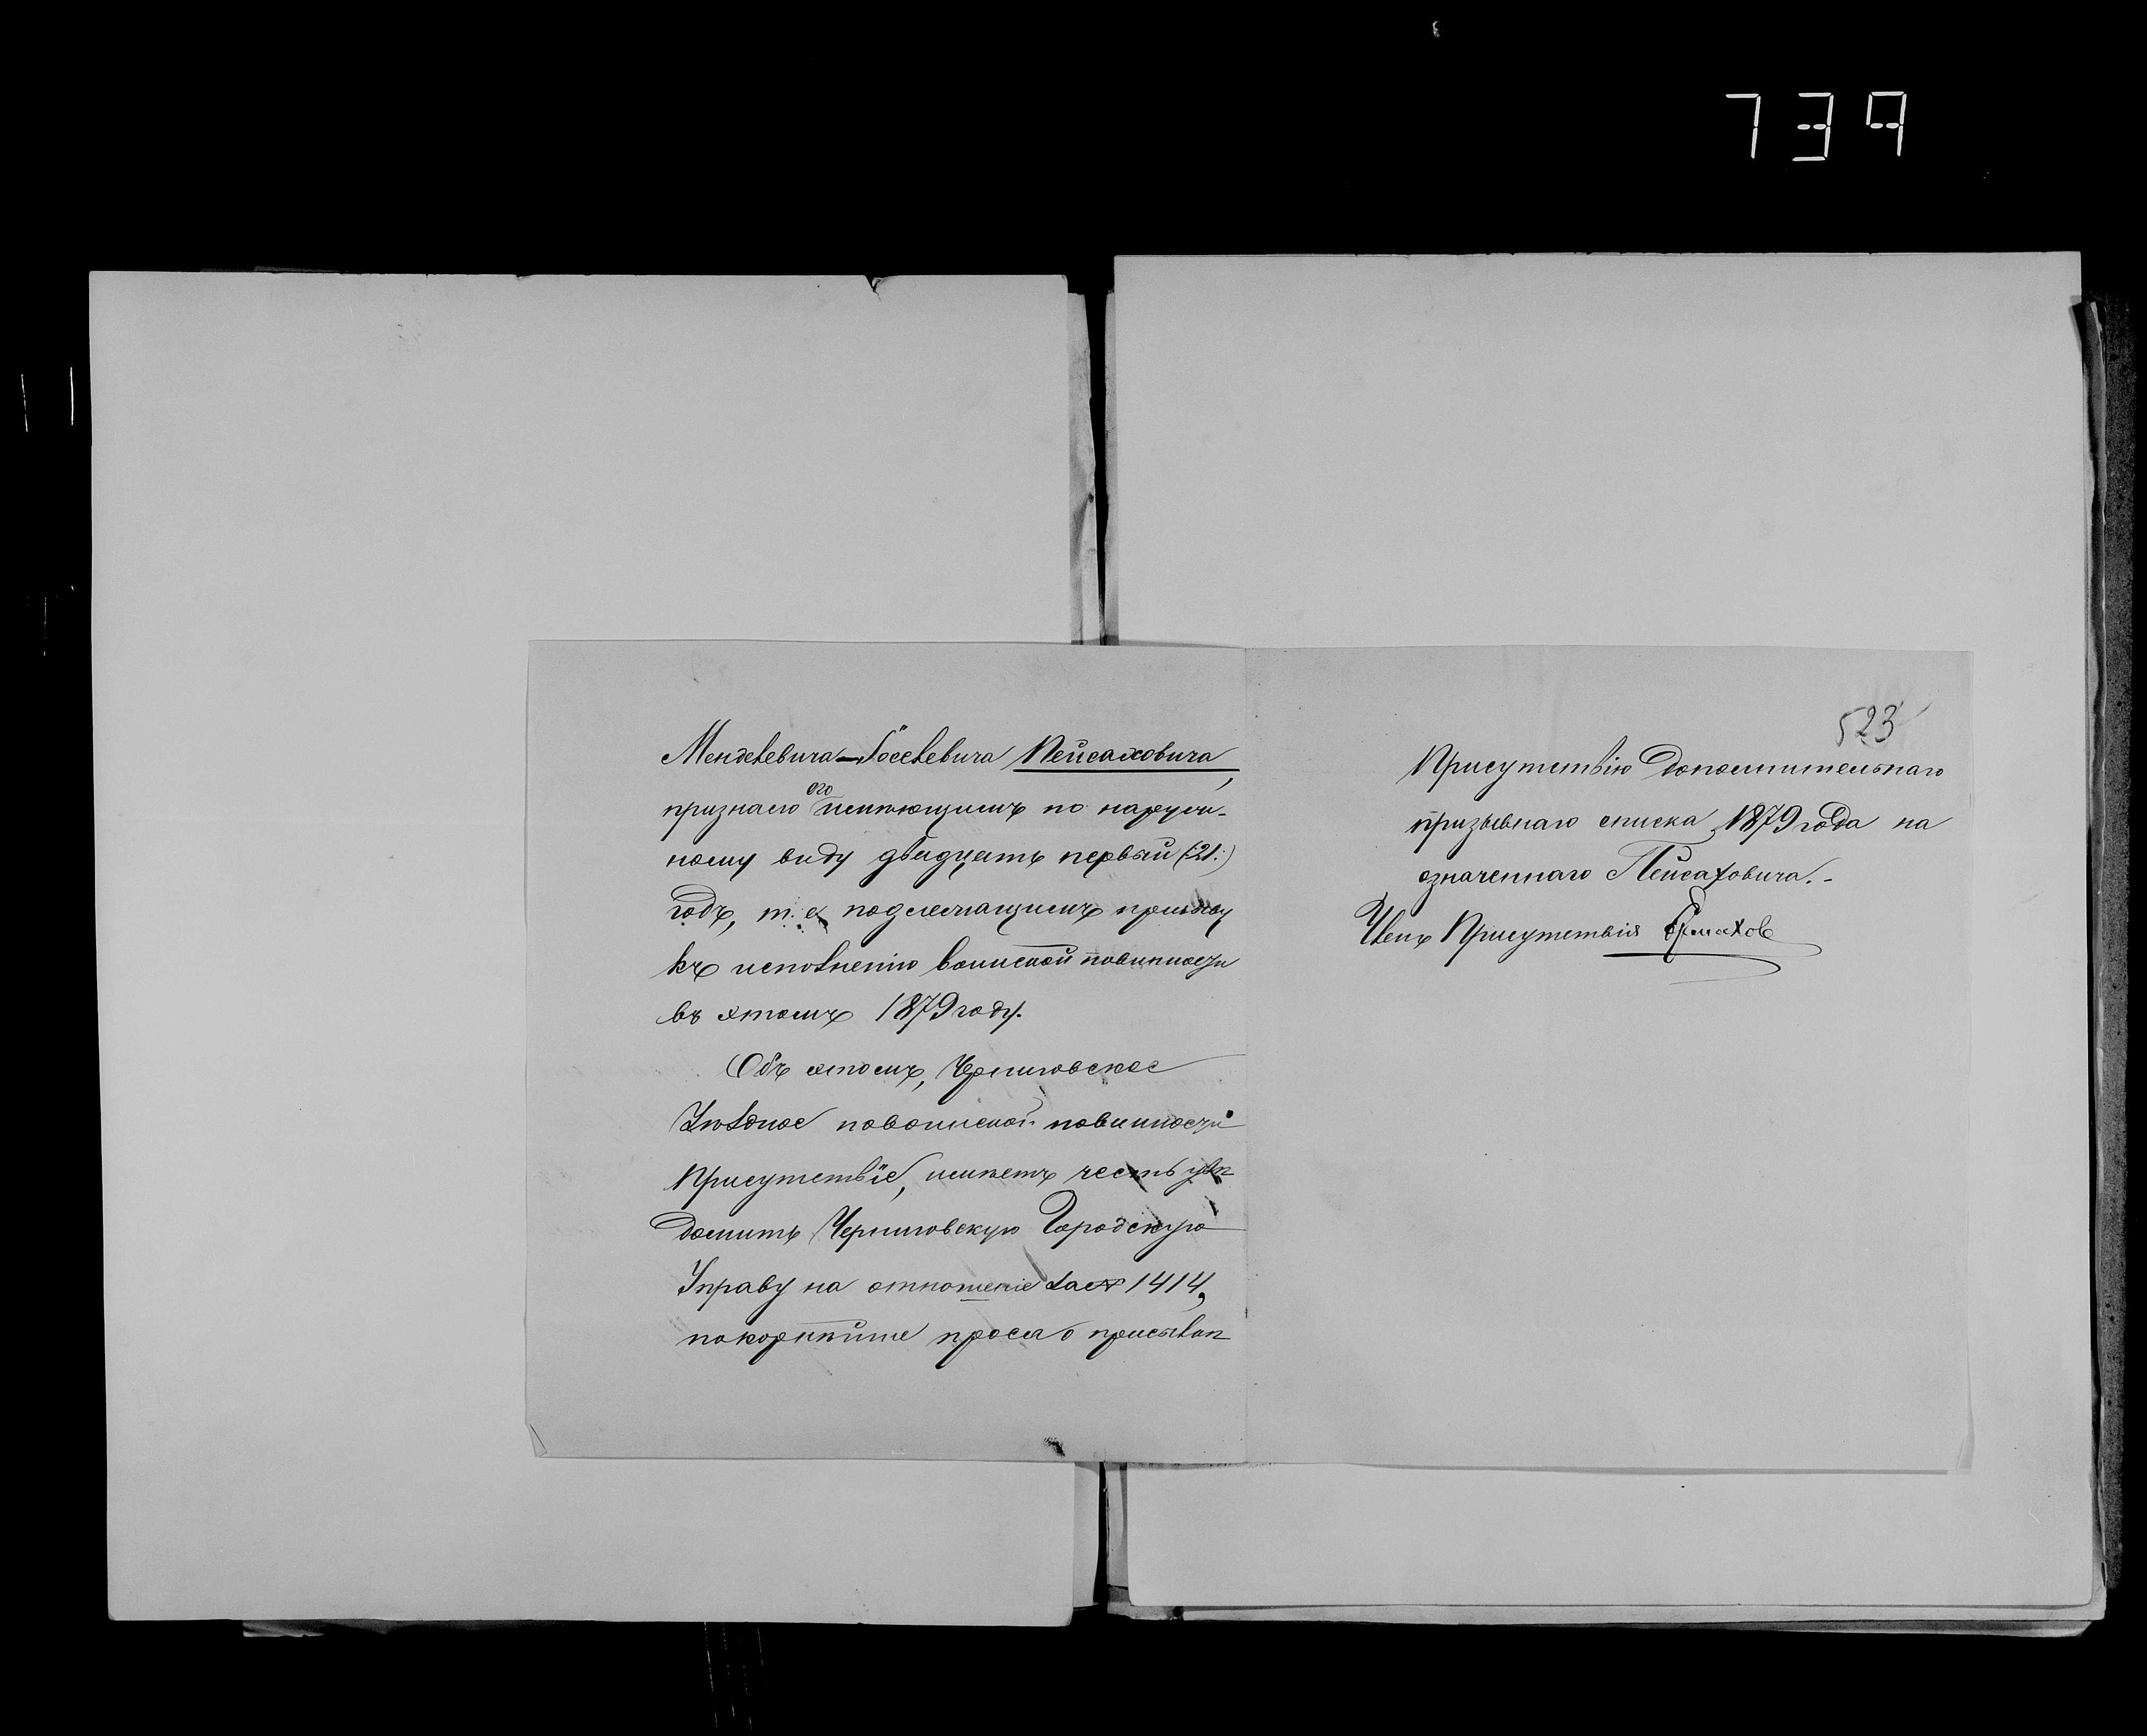 739
Менделевича-Іоселевича Пейсаховича,
признало его имѣющимъ по наруж-
ному виду двадцать первый (:21:)
годъ, т. е. подлежащимъ призыву
къ исполненію воинской повинности
въ этомъ 1879 году.
Объ этомъ, Черниговское
Уѣздное по воинской повинности
Присутствіе, имѣетъ честь увѣ-
домить Черниговскую Городскую
Управу на отношеніе за № 1414,
покорнѣйше прося о присылкѣ
523
Присутствію дополнительнаго
призывнаго списка 1879 года на
означеннаго Пейсаховича.-
Членъ Присутствія